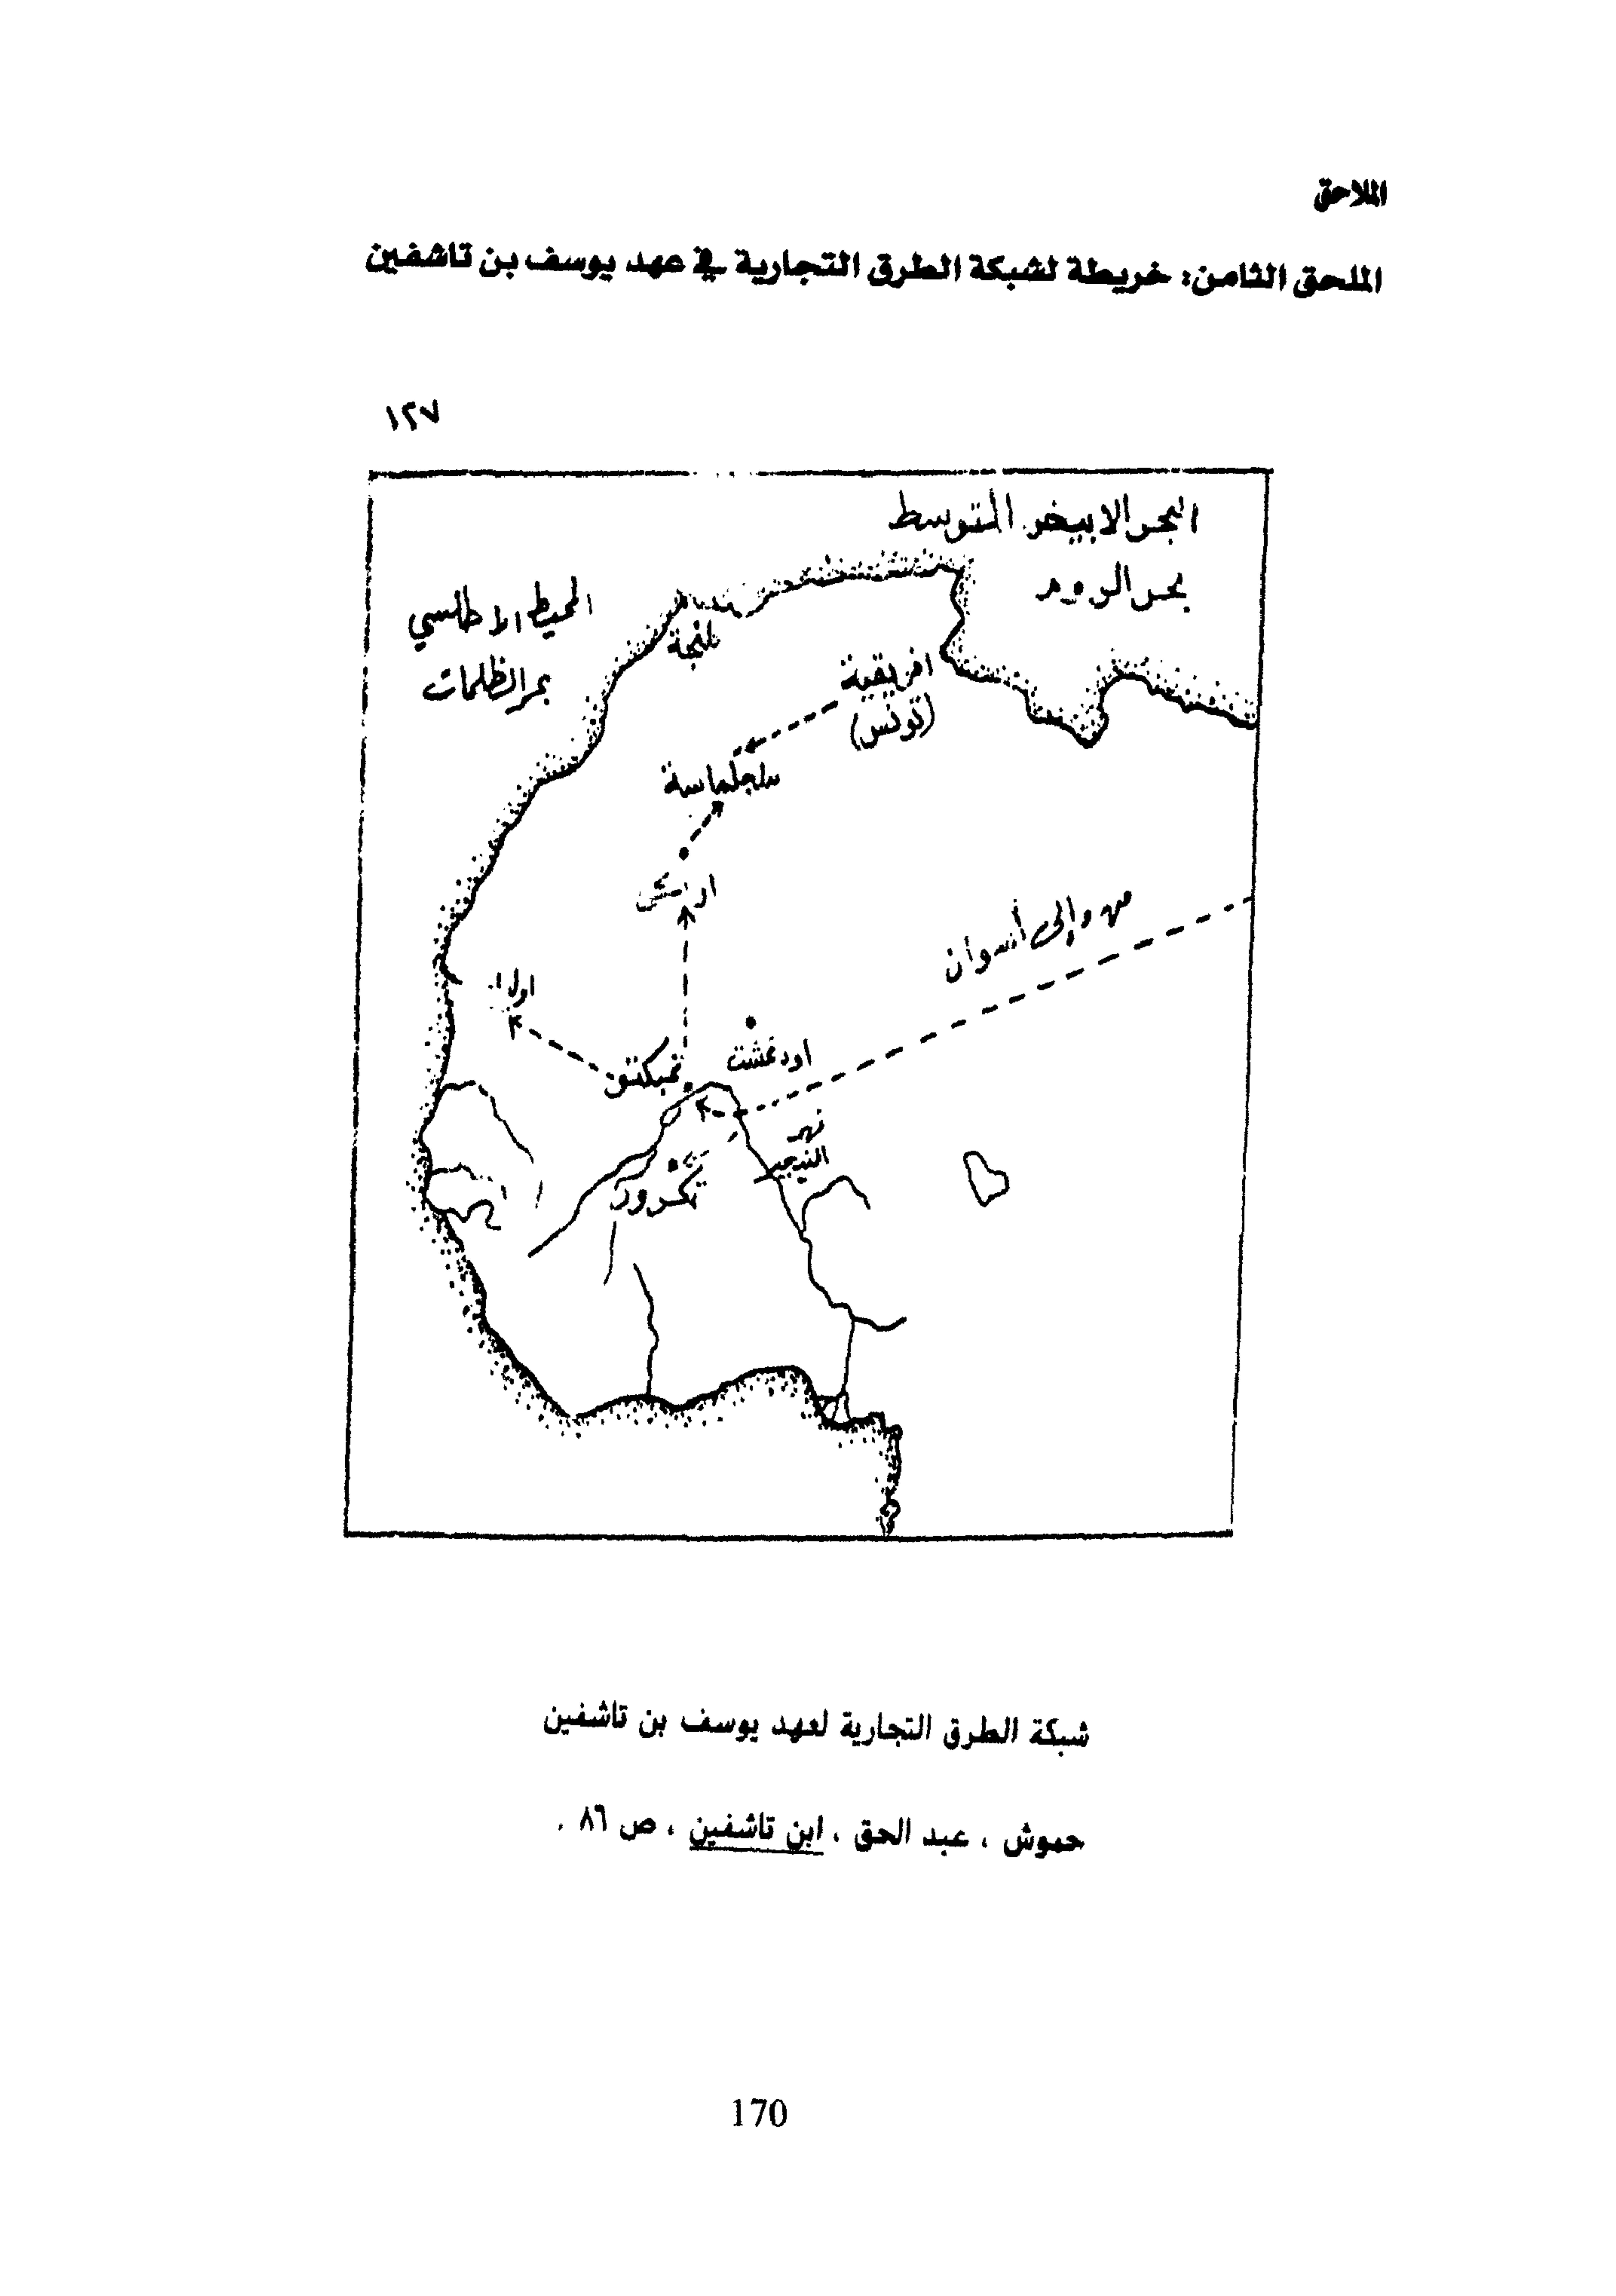 الملاحق
الملحق الثامن: خريطة لشبكة الطرق التجارية في عهد يوسف بن تاشفين
١٢٧
البحر الابيض المتوسط
بحر الروم
المحيط الاطلسي
بحر الظلمات
طنجة
افريقية
(تونس)
سلجلماسة
من وإلى أسوان
اودغشت
تمبكتو
نهر
النيجر
تكرور
شبكة الطرق التجارية لعهد يوسف بن تاشفين
حموش ، عبد الحق ، ابن تاشفين ، ص ٨٦ .
170